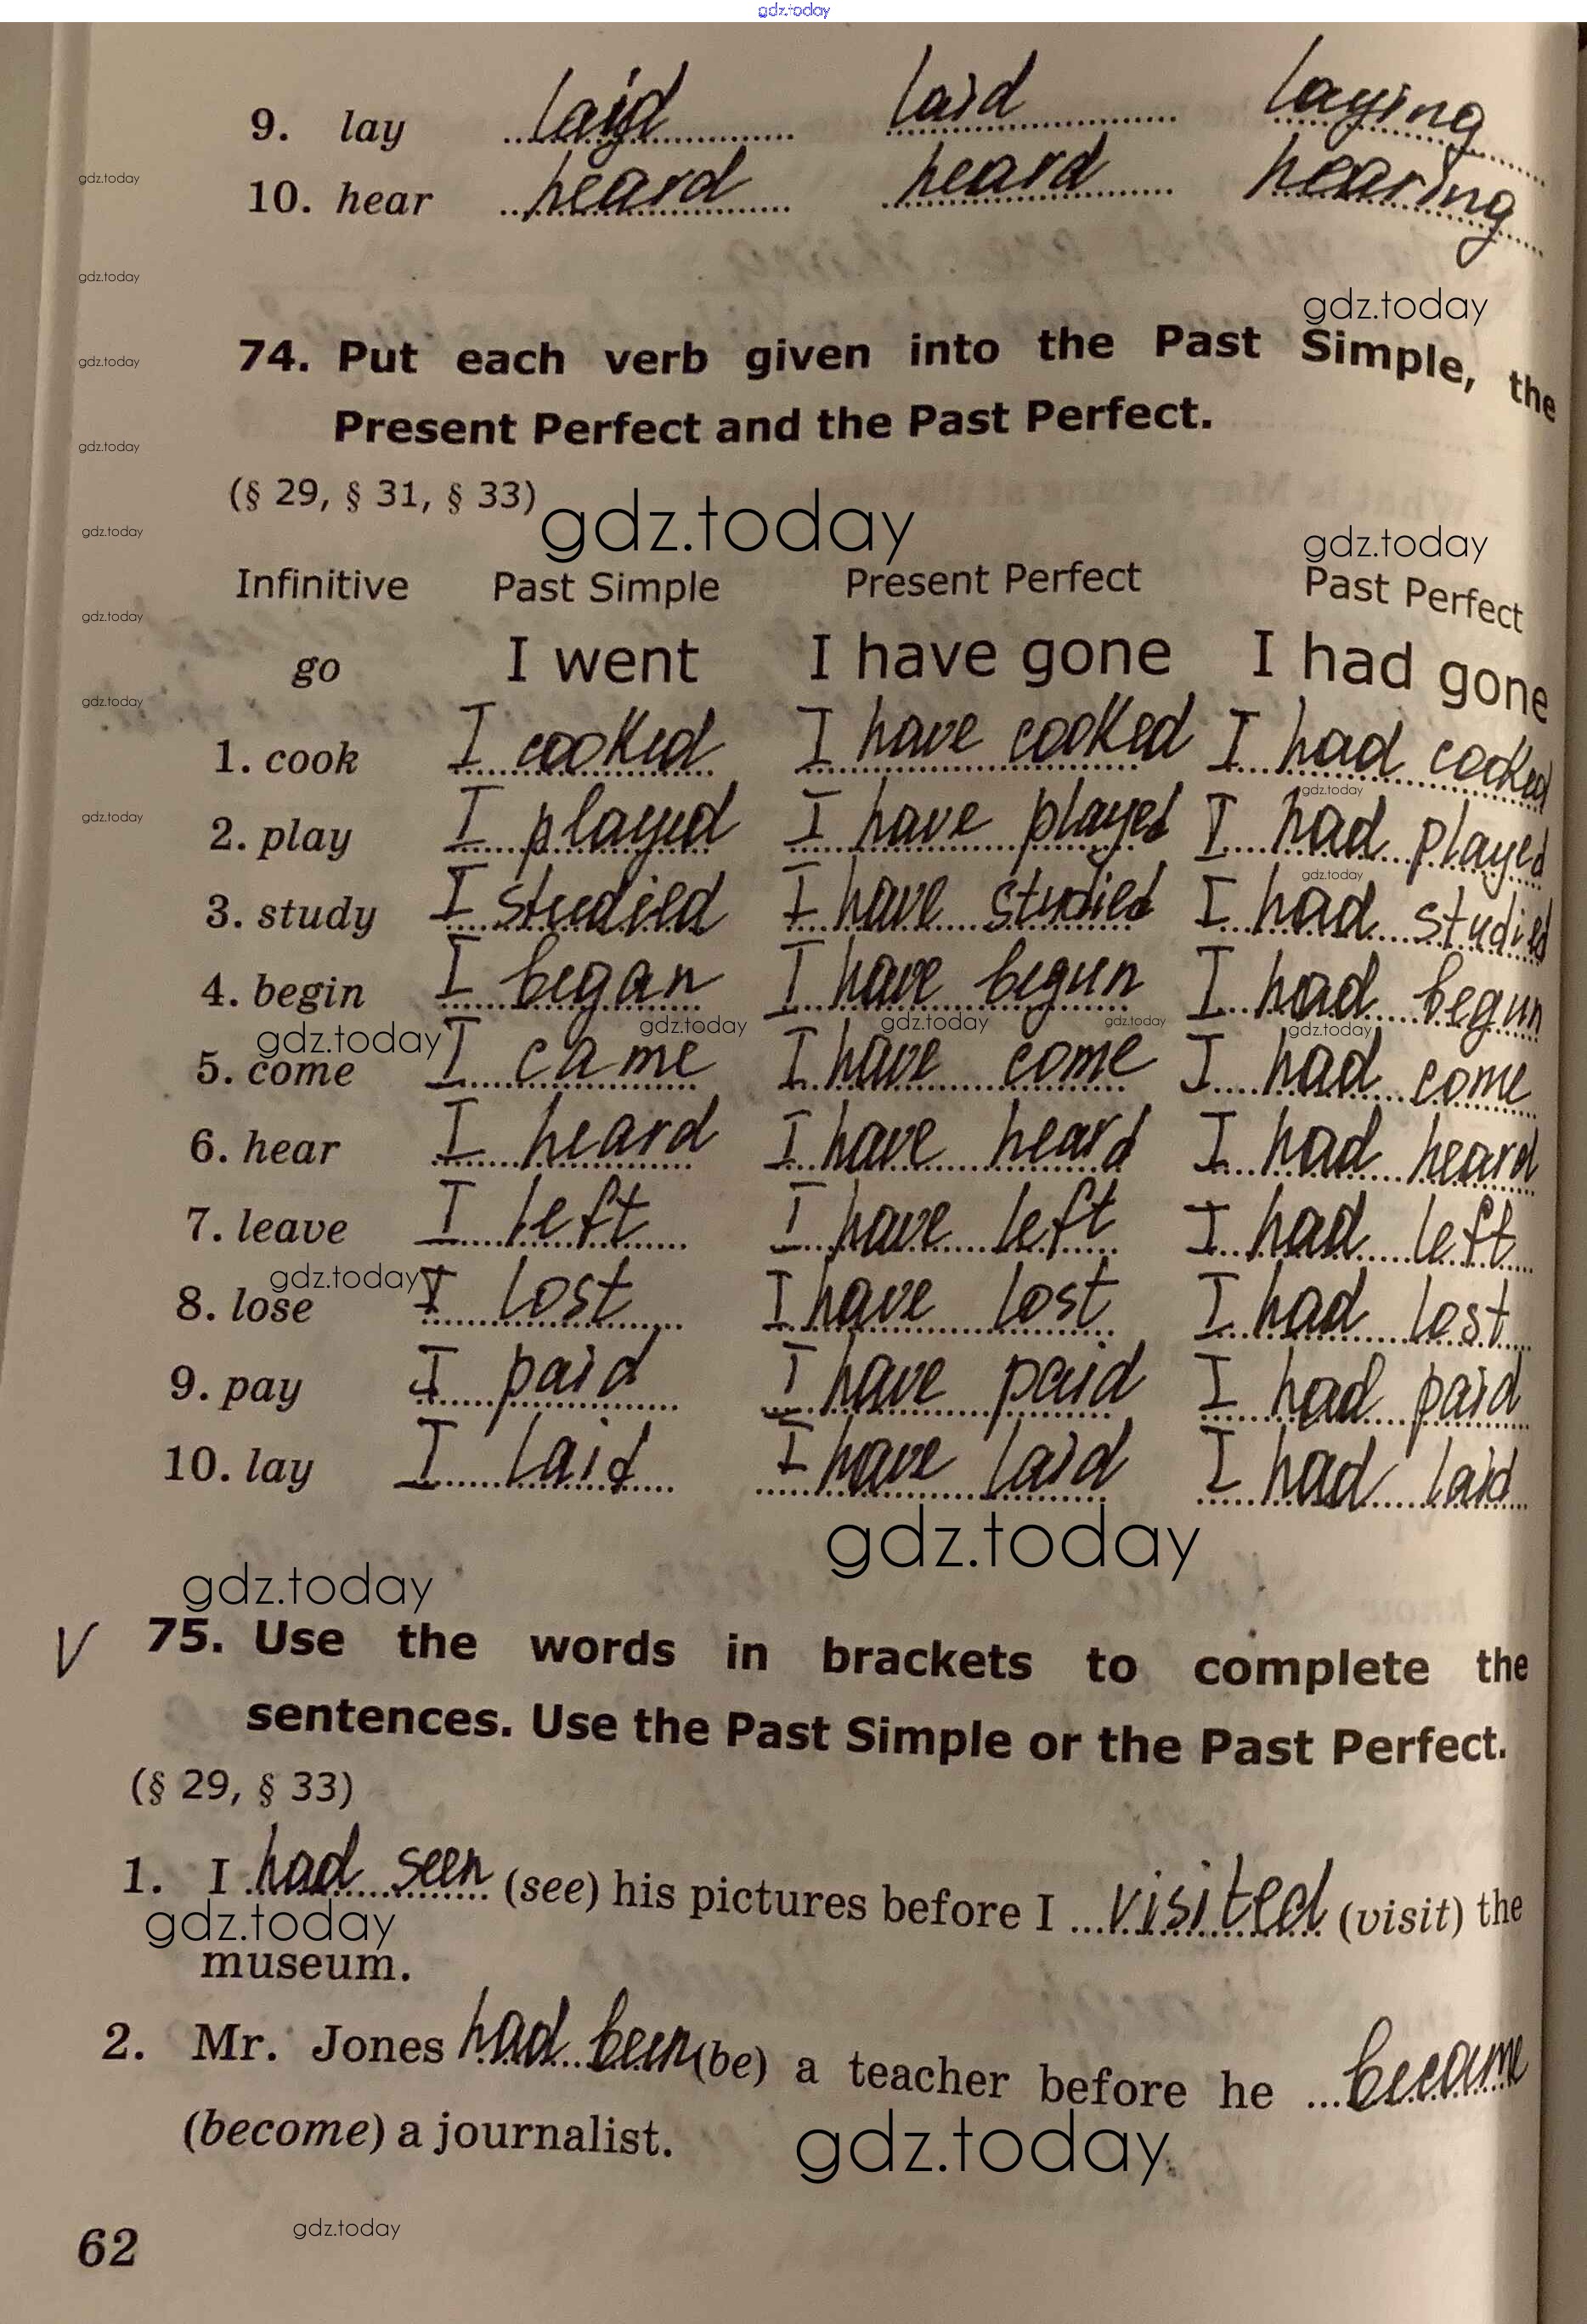 gdz.today
9. lay laid laid laying
gdz.today
10. hear heard heard hearing
gdz.today
gdz.today
gdz.today
74. Put each verb given into the Past Simple, the
Present Perfect and the Past Perfect.
gdz.today
(§ 29, § 31, § 33)
gdz.today
gdz.today
gdz.today
Infinitive Past Simple Present Perfect Past Perfect
gdz.today
go I went I have gone I had gone
gdz.today
1. cook I cooked I have cooked I had cooked
gdz.today
gdz.today
2. play I played I have played I had played
gdz.today
3. study I studied I have studied I had studied
4. begin I began I have begun I had begun
gdz.today gdz.today gdz.today gdz.today gdz.today
5. come I came I have come I had come
6. hear I heard I have heard I had heard
7. leave I left I have left I had left
gdz.today
8. lose I lost I have lost I had lost
9. pay I paid I have paid I had paid
10. lay I laid I have laid I had laid
gdz.today
gdz.today
V 75. Use the words in brackets to complete the
sentences. Use the Past Simple or the Past Perfect.
(§ 29, § 33)
1. I had seen (see) his pictures before I visited (visit) the
gdz.today
museum.
2. Mr. Jones had been (be) a teacher before he became
(become) a journalist.
gdz.today
gdz.today
62